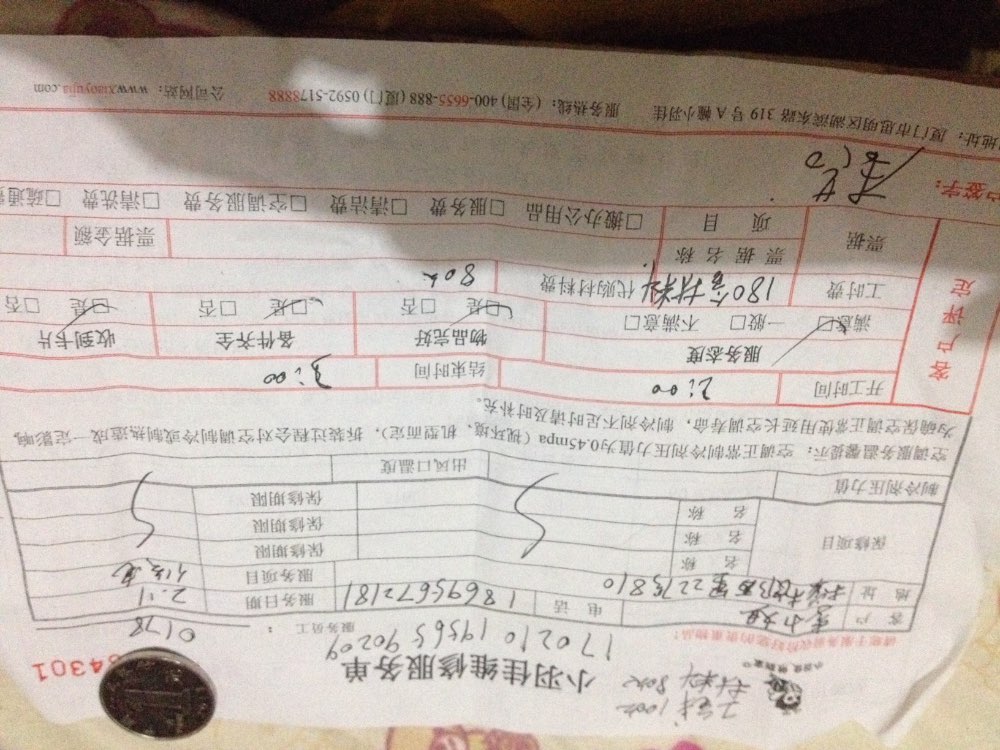 工钱100元
材料80元
小羽佳维修服务单
84301
请您于服务前收拾好您的贵重物品!
17021019565 90209
服务员工:
0178
客 户
电 话
18695672181
服务日期
2.11
地 址
2275810
服务项目
保修项目
名 称
保修期限
名 称
保修期限
名 称
保修期限
制冷剂压力值
出风口温度
空调服务温馨提示:空调正常制冷剂压力值为0.45mpa(视环境、机型而定),拆装过程会对空调制冷或制热造成一定影响,
为确保空调正常使用延长空调寿命,制冷剂不足时请及时补充。
客户评定
开工时间
2:00
结束时间
3:00
服务态度
物品完好
备件齐全
收到卡片
满意□ 一般□ 不满意□
□是 □否
□是 □否
□是 □否
工时费
180含材料
代购材料费
80元
票据
票 据 名 称
票据金额
项 目
□搬办公用品 □服务费 □清洁费 □空调服务费 □清洗费 □疏通费
户签字:
地址:厦门市思明区湖滨东路 319 号 A 幢小羽佳 服务热线:(全国) 400-6655-888 (厦门) 0592-5178888 公司网站:www.xiaoyujia.com